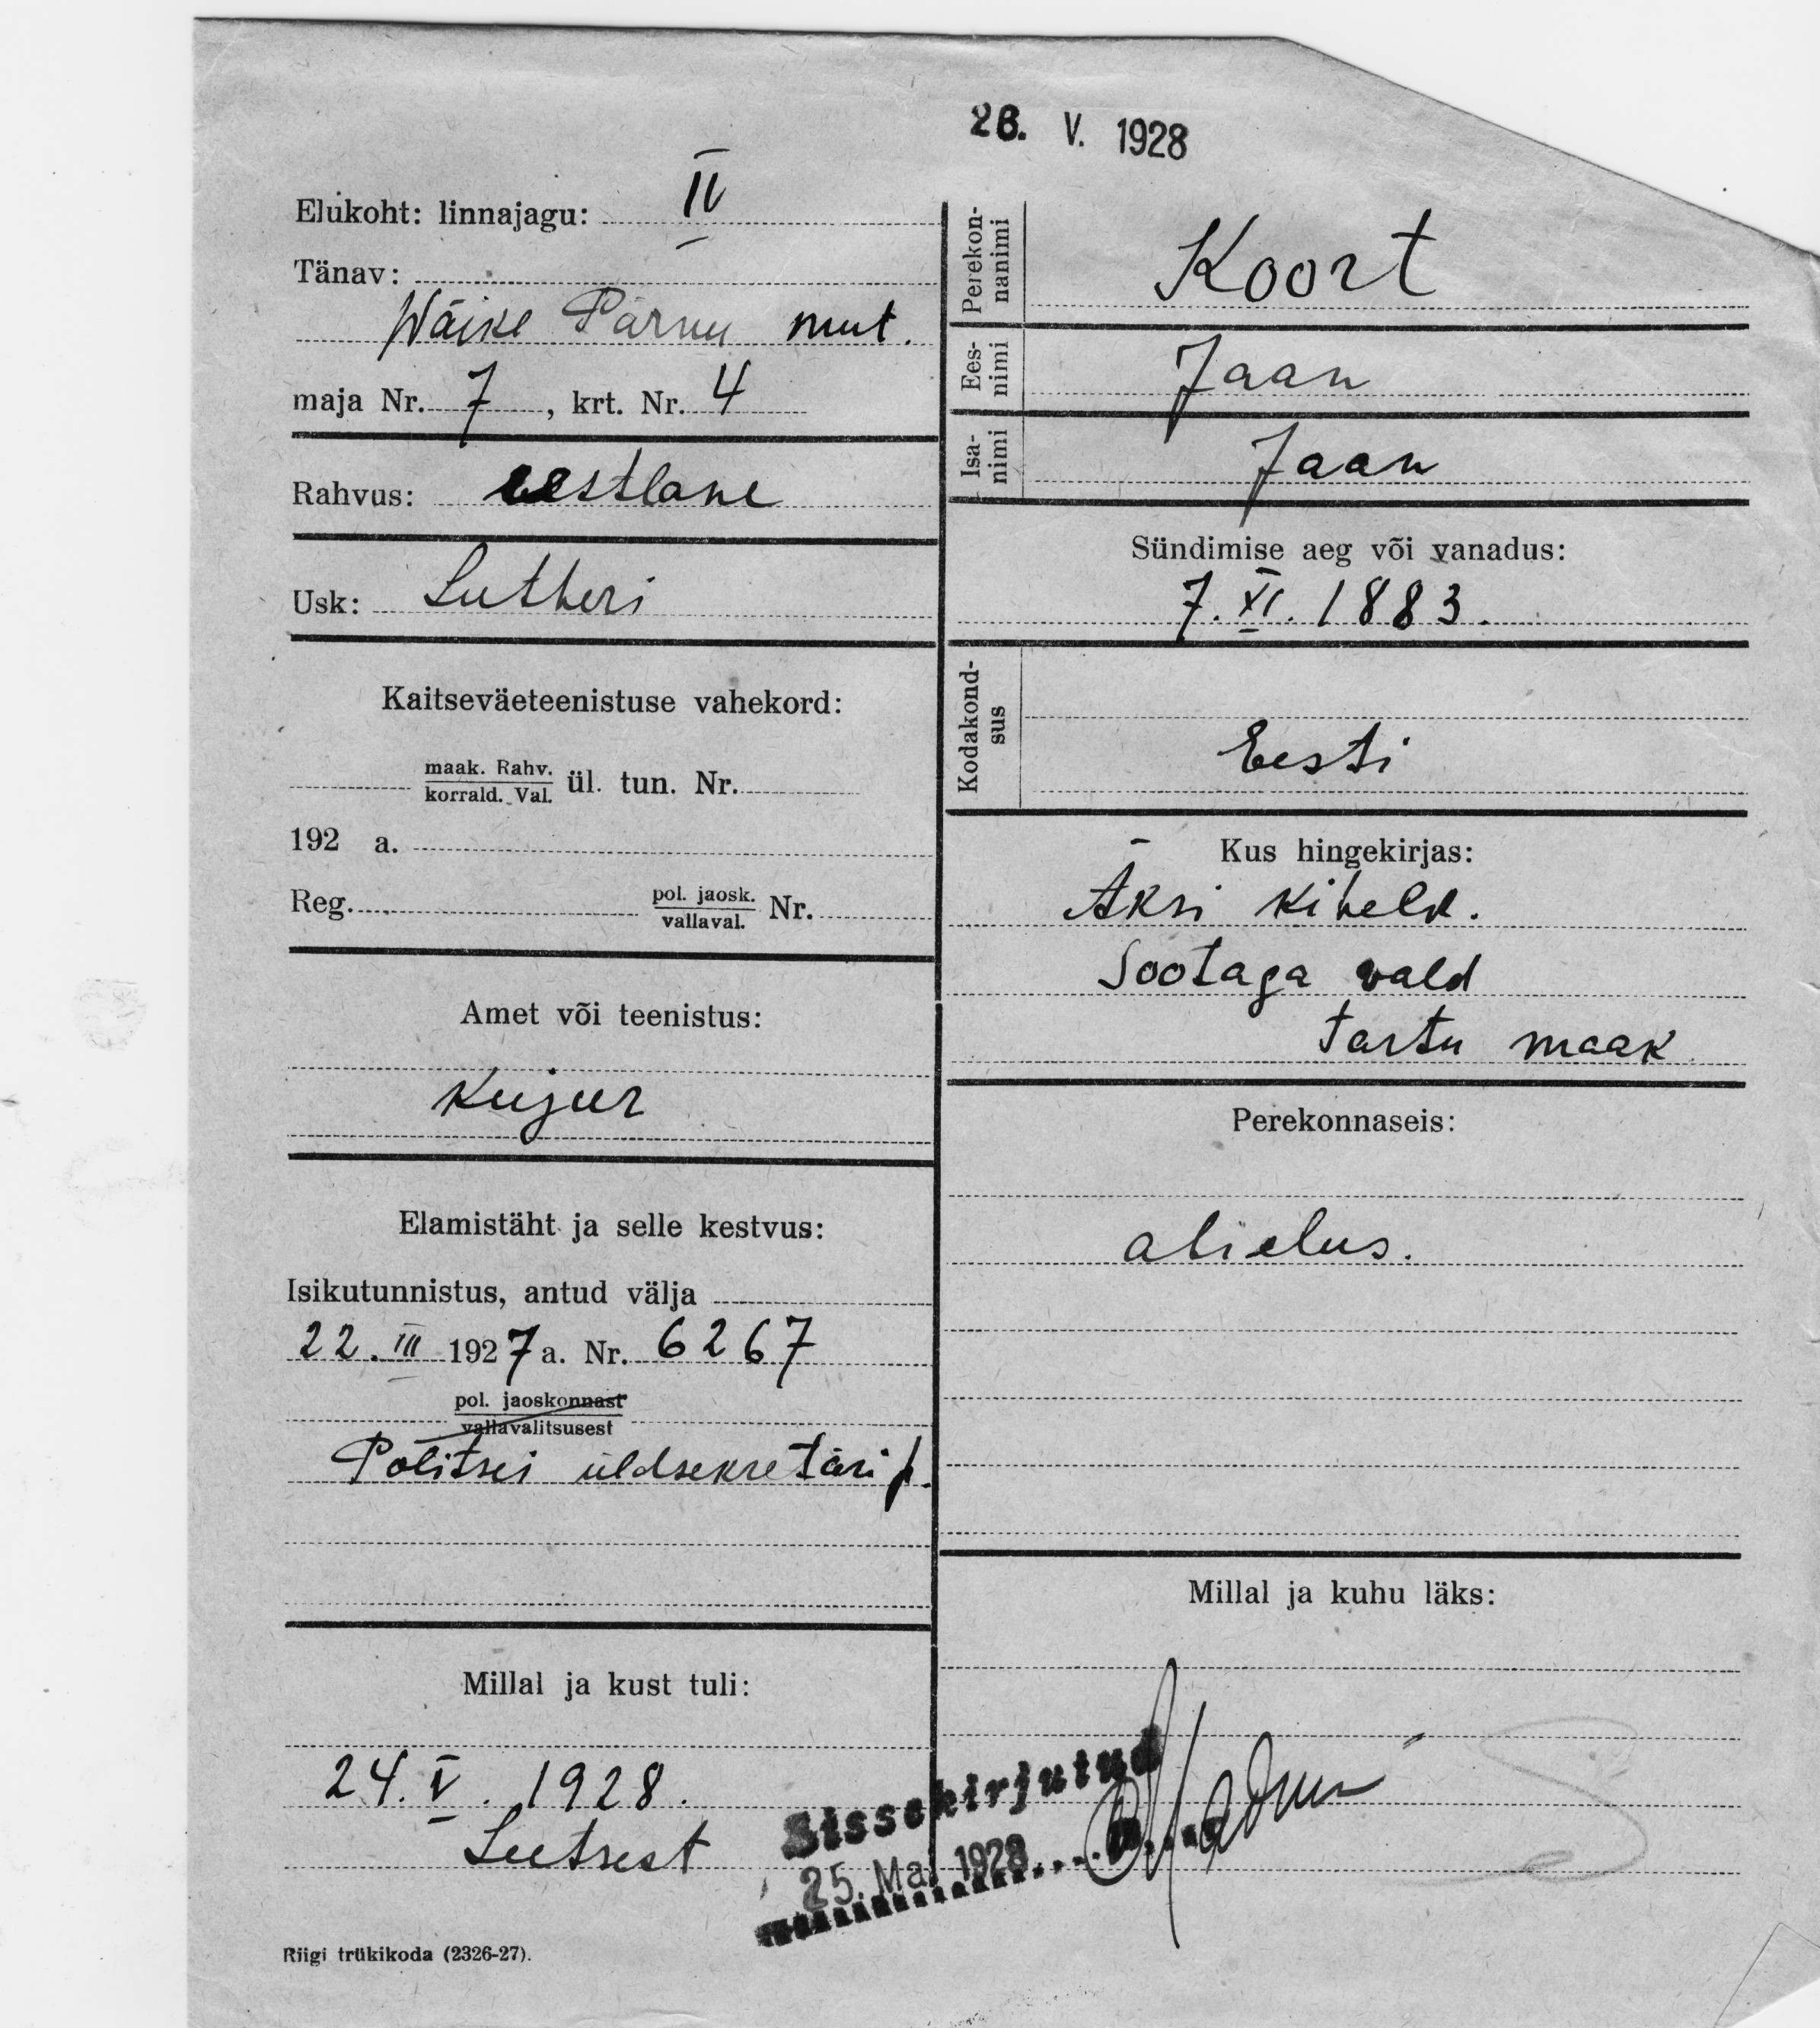 26. V. 1928
Elukoht: linnajagu: IV
Tänav:
Wäike Pärnu mnt.
maja Nr. 7, krt. Nr. 4
Rahvus: eestlane
Usk: Lutheri
Kaitseväeteenistuse vahekord:
maak. Rahv.
korrald. Val. ül. tun. Nr.
192 a.
Reg. pol. jaosk. Nr.
vallaval.
Amet või teenistus:
Kujur
Elamistäht ja selle kestvus:
Isikutunnistus, antud välja
22. III 1927 a. Nr. 6267
pol. jaoskonnast
vallavalitsusest
Politsei üldsekretäri p.
Millal ja kust tuli:
24. V. 1928.
Leetsest
Riigi trükikoda (2326-27).
Perekon-
nanimi
Koort
Ees-
nimi
Jaan
Isa-
nimi
Jaan
Sündimise aeg või vanadus:
7. XI. 1883.
Kodakond-
sus
Eesti
Kus hingekirjas:
Äksi kihelk.
Sootaga vald
Tartu maak
Perekonnaseis:
abielus.
Millal ja kuhu läks:
Sissekirjutud
25. Mai 1928